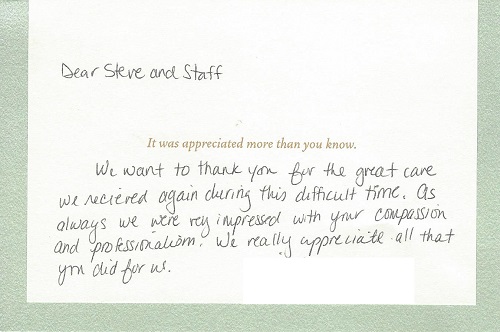 Dear Steve and Staff
It was appreciated more than you know.
We want to thank you for the great care
we recieved again during this difficult time. As
always we were very impressed with your compassion
and professionalism. We really appreciate all that
you did for us.